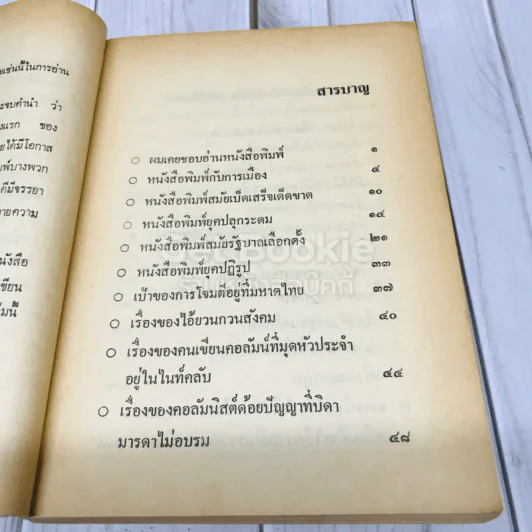 ยเช่นนี้ในการอ่าน
ะจบคำนำ ว่า
งแรก ของ
ยได้มีโอกาส
พ์บางพวก
ดีมีจรรยา
ายความ
นังสือ
เขียน
มนี้
สารบาญ
ผมเคยชอบอ่านหนังสือพิมพ์ ๑
หนังสือพิมพ์กับการเมือง ๔
หนังสือพิมพ์สมัยเบ็ดเสร็จเด็ดขาด ๑๐
หนังสือพิมพ์ยุคปลุกระดม ๑๔
หนังสือพิมพ์สมัยรัฐบาลเลือกตั้ง ๒๑
หนังสือพิมพ์ยุคปฏิรูป ๓๓
เบ้าของการโจมตีอยู่ที่มหาดไทย ๓๗
เรื่องของไอ้ยวนกวนสังคม ๔๐
เรื่องของคนเขียนคอลัมน์ที่มุดหัวประจำ
อยู่ในไนท์คลับ ๔๔
เรื่องของคอลัมนิสต์ด้อยปัญญาที่บิดา
มารดาไม่อบรม ๔๘
Get Bookie
ร้านหนังสือบุ๊คกี้